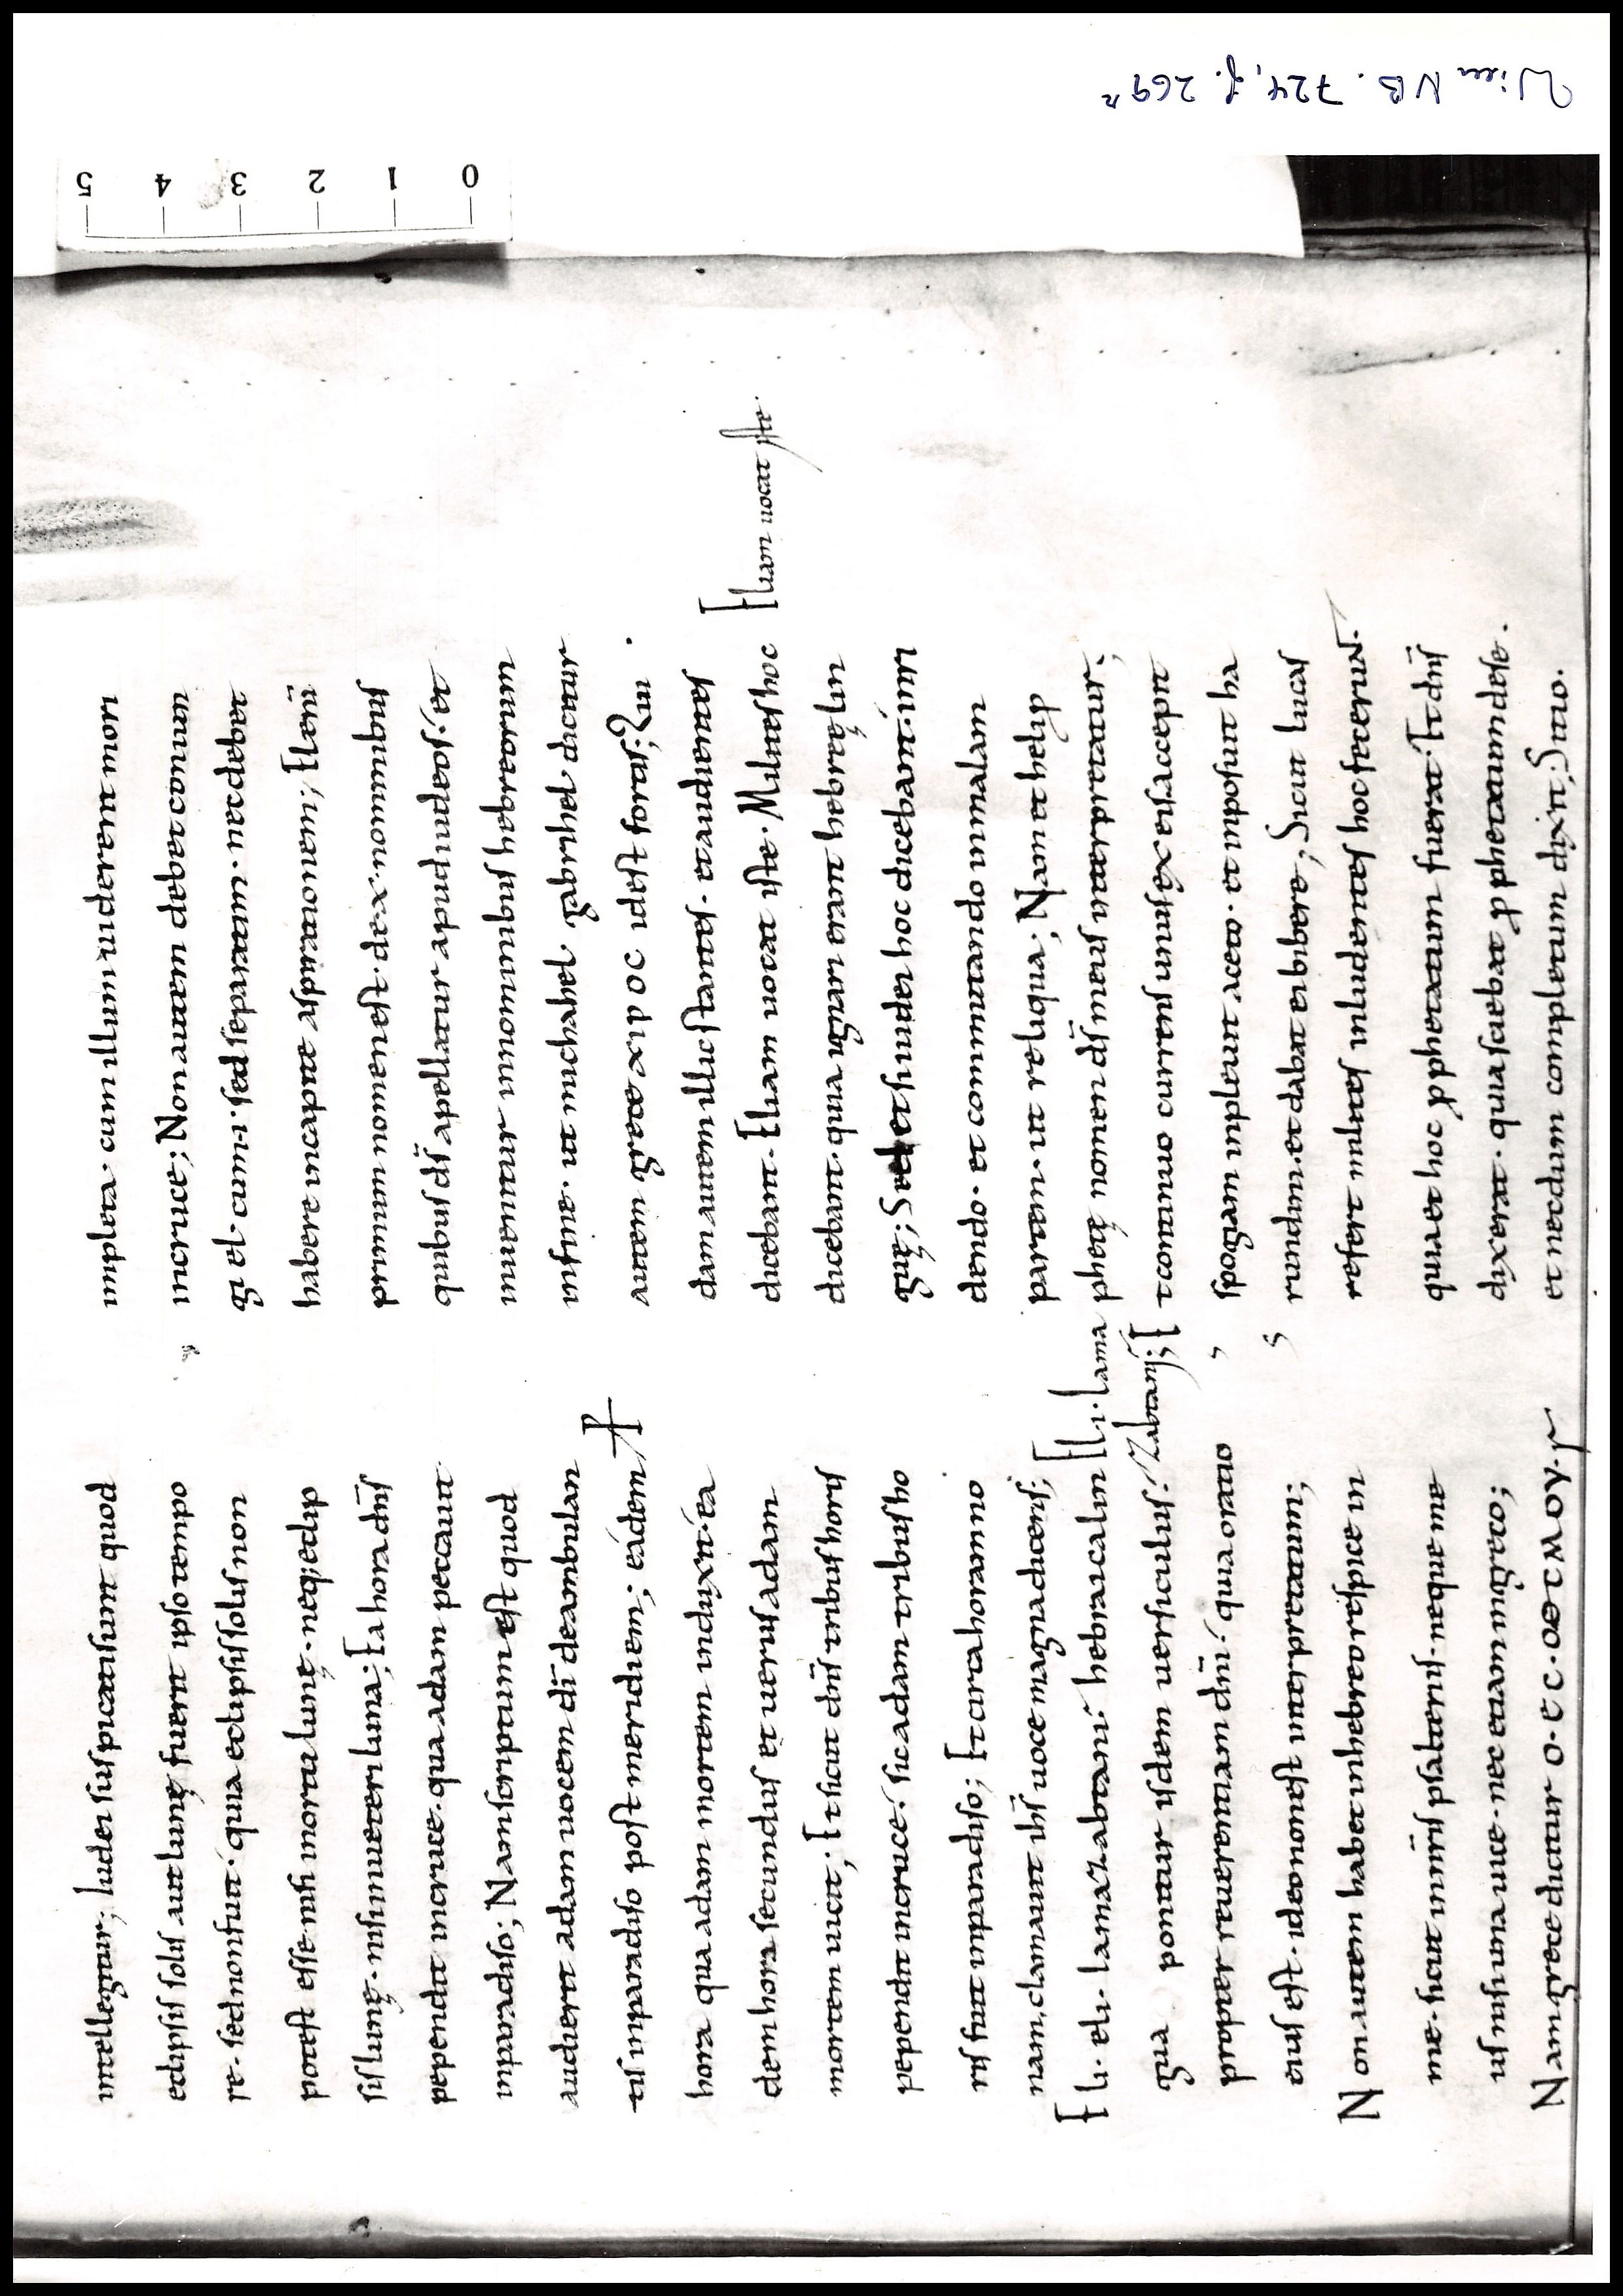 Wien NB. 724, f. 269r
0 1 2 3 4 5
intellegitur; Iudei suspicati sunt quod
eclipsis solis aut lunę fuerit ipso tempo
re. sed non fuit. quia eclipsis solis non
potest esse nisi mortu lunę. neq; eclip
sis lunę. nisi in ueteri luna; Ea hora dn̄s
pependit in cruce. qua adam peccauit
in paradiso; Nam scriptum est quod
audierit adam uocem dī deambulan
tis in paradiso post meridiem; eádem
hora qua adam mortem induxit. éa
dem hora secundus et uerus adam
mortem uicit; Et sicut dn̄s tribus horis
pependit in cruce. sic adam tribus ho
ris fuit in paradiso; Et circa horam no
nam. clamauit ihs̄ uoce magna dicens;
Eli. eli. lama zabtani. hebraica lin Eli. lama
gua ponitur isdem uersiculus. zabtani;
propter reuerentiam dn̄i. quia oratio
eius est. ideo non est interpretatum;
Non autem habet in hebreo respice in
me. sicut in nr̄is psalteriis. neque me
us nisi una uice. nec etiam in greco;
Nam grece dicitur o. ΘC. oΘC MOY.
impleta cum illum uiderent mori
in cruce; Non autem debet coniun
gi el. cum. i. sed separatim. nec debet
habere in capite aspirationem; El enī
primum nomen est. de. x. nominibus
quibus dī apellatur apud iudeos. et
inuenitur in nominibus hebreorum
in fine. ut michahel gabrihel dicitur
autem grece xip oc id est fortis; Qui
dam autem illic stantes. et audientes
dicebant. Eliam uocat iste. Milites hoc Eliam uocat iste.
dicebant. quia ignari erant hebręę lin
guę; S uel et si iudei hoc dicebant. inri
dendo. et commutando in malam
partem. ut reliqua; Nam et heli p
phetę nomen dī meus interpretatur; E
t continuo currens unus ex eis accepit
spogam inpleuit aceto. et inposuit ha
rundini. et dabat ei bibere; Sicut lucas
refert milites inludentes hoc fecerunt.
quia et hoc p phetatum fuerat. Et dn̄s
dixerat. quia sciebat p phetatum de se.
et necdum completum dixit; Sitio.